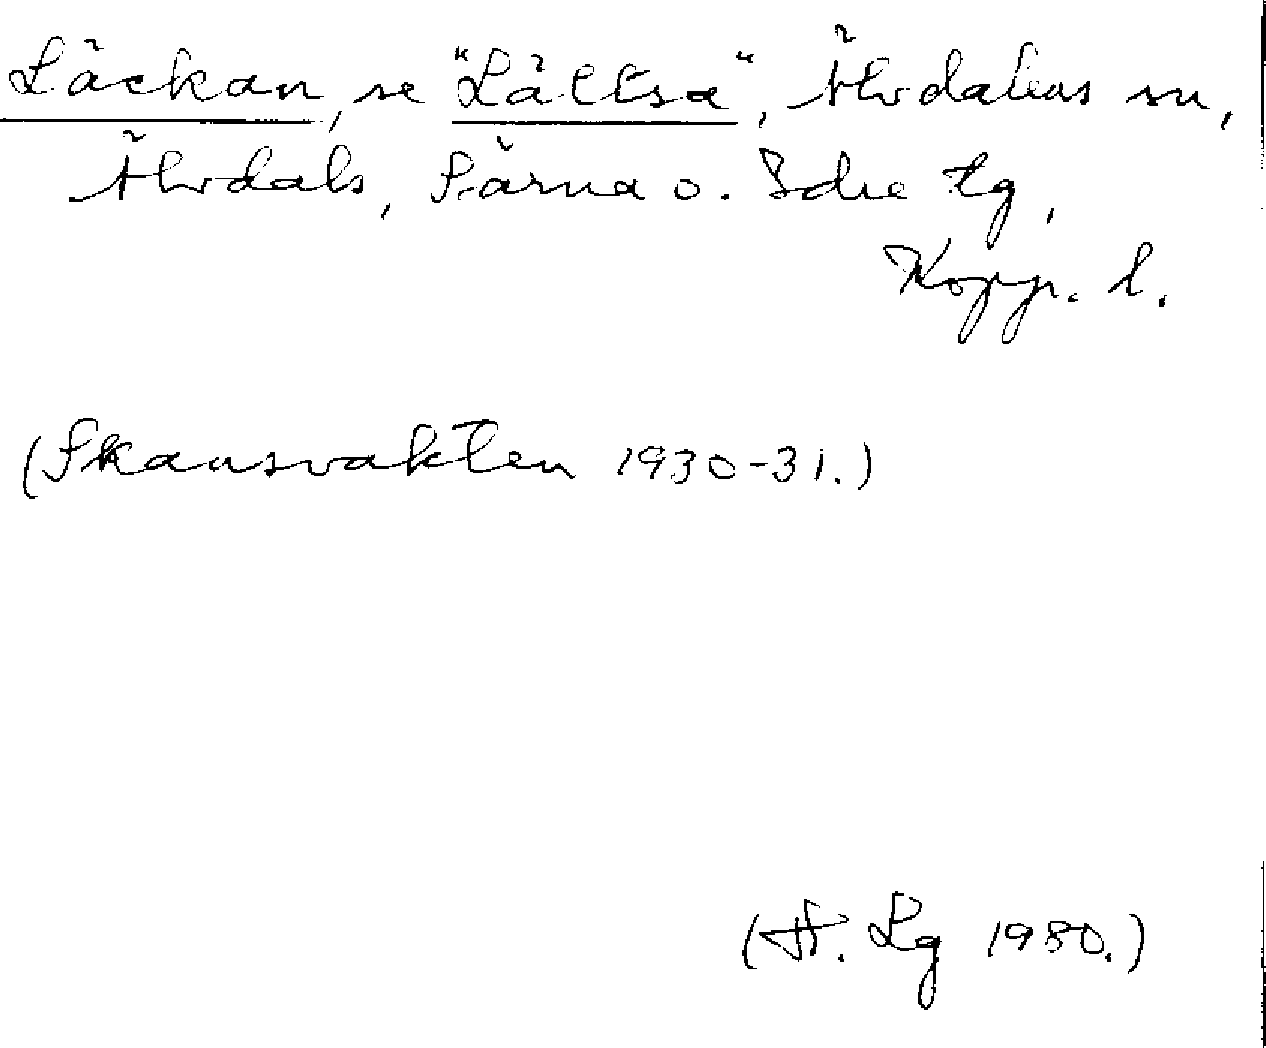 Läckan, se "Lälltsa", Älvdalens sn,
Älvdals, Särna o. Idre tg,
Kopp. l.
(Skansvakten 1930-31.)
(H. Lg 1980.)